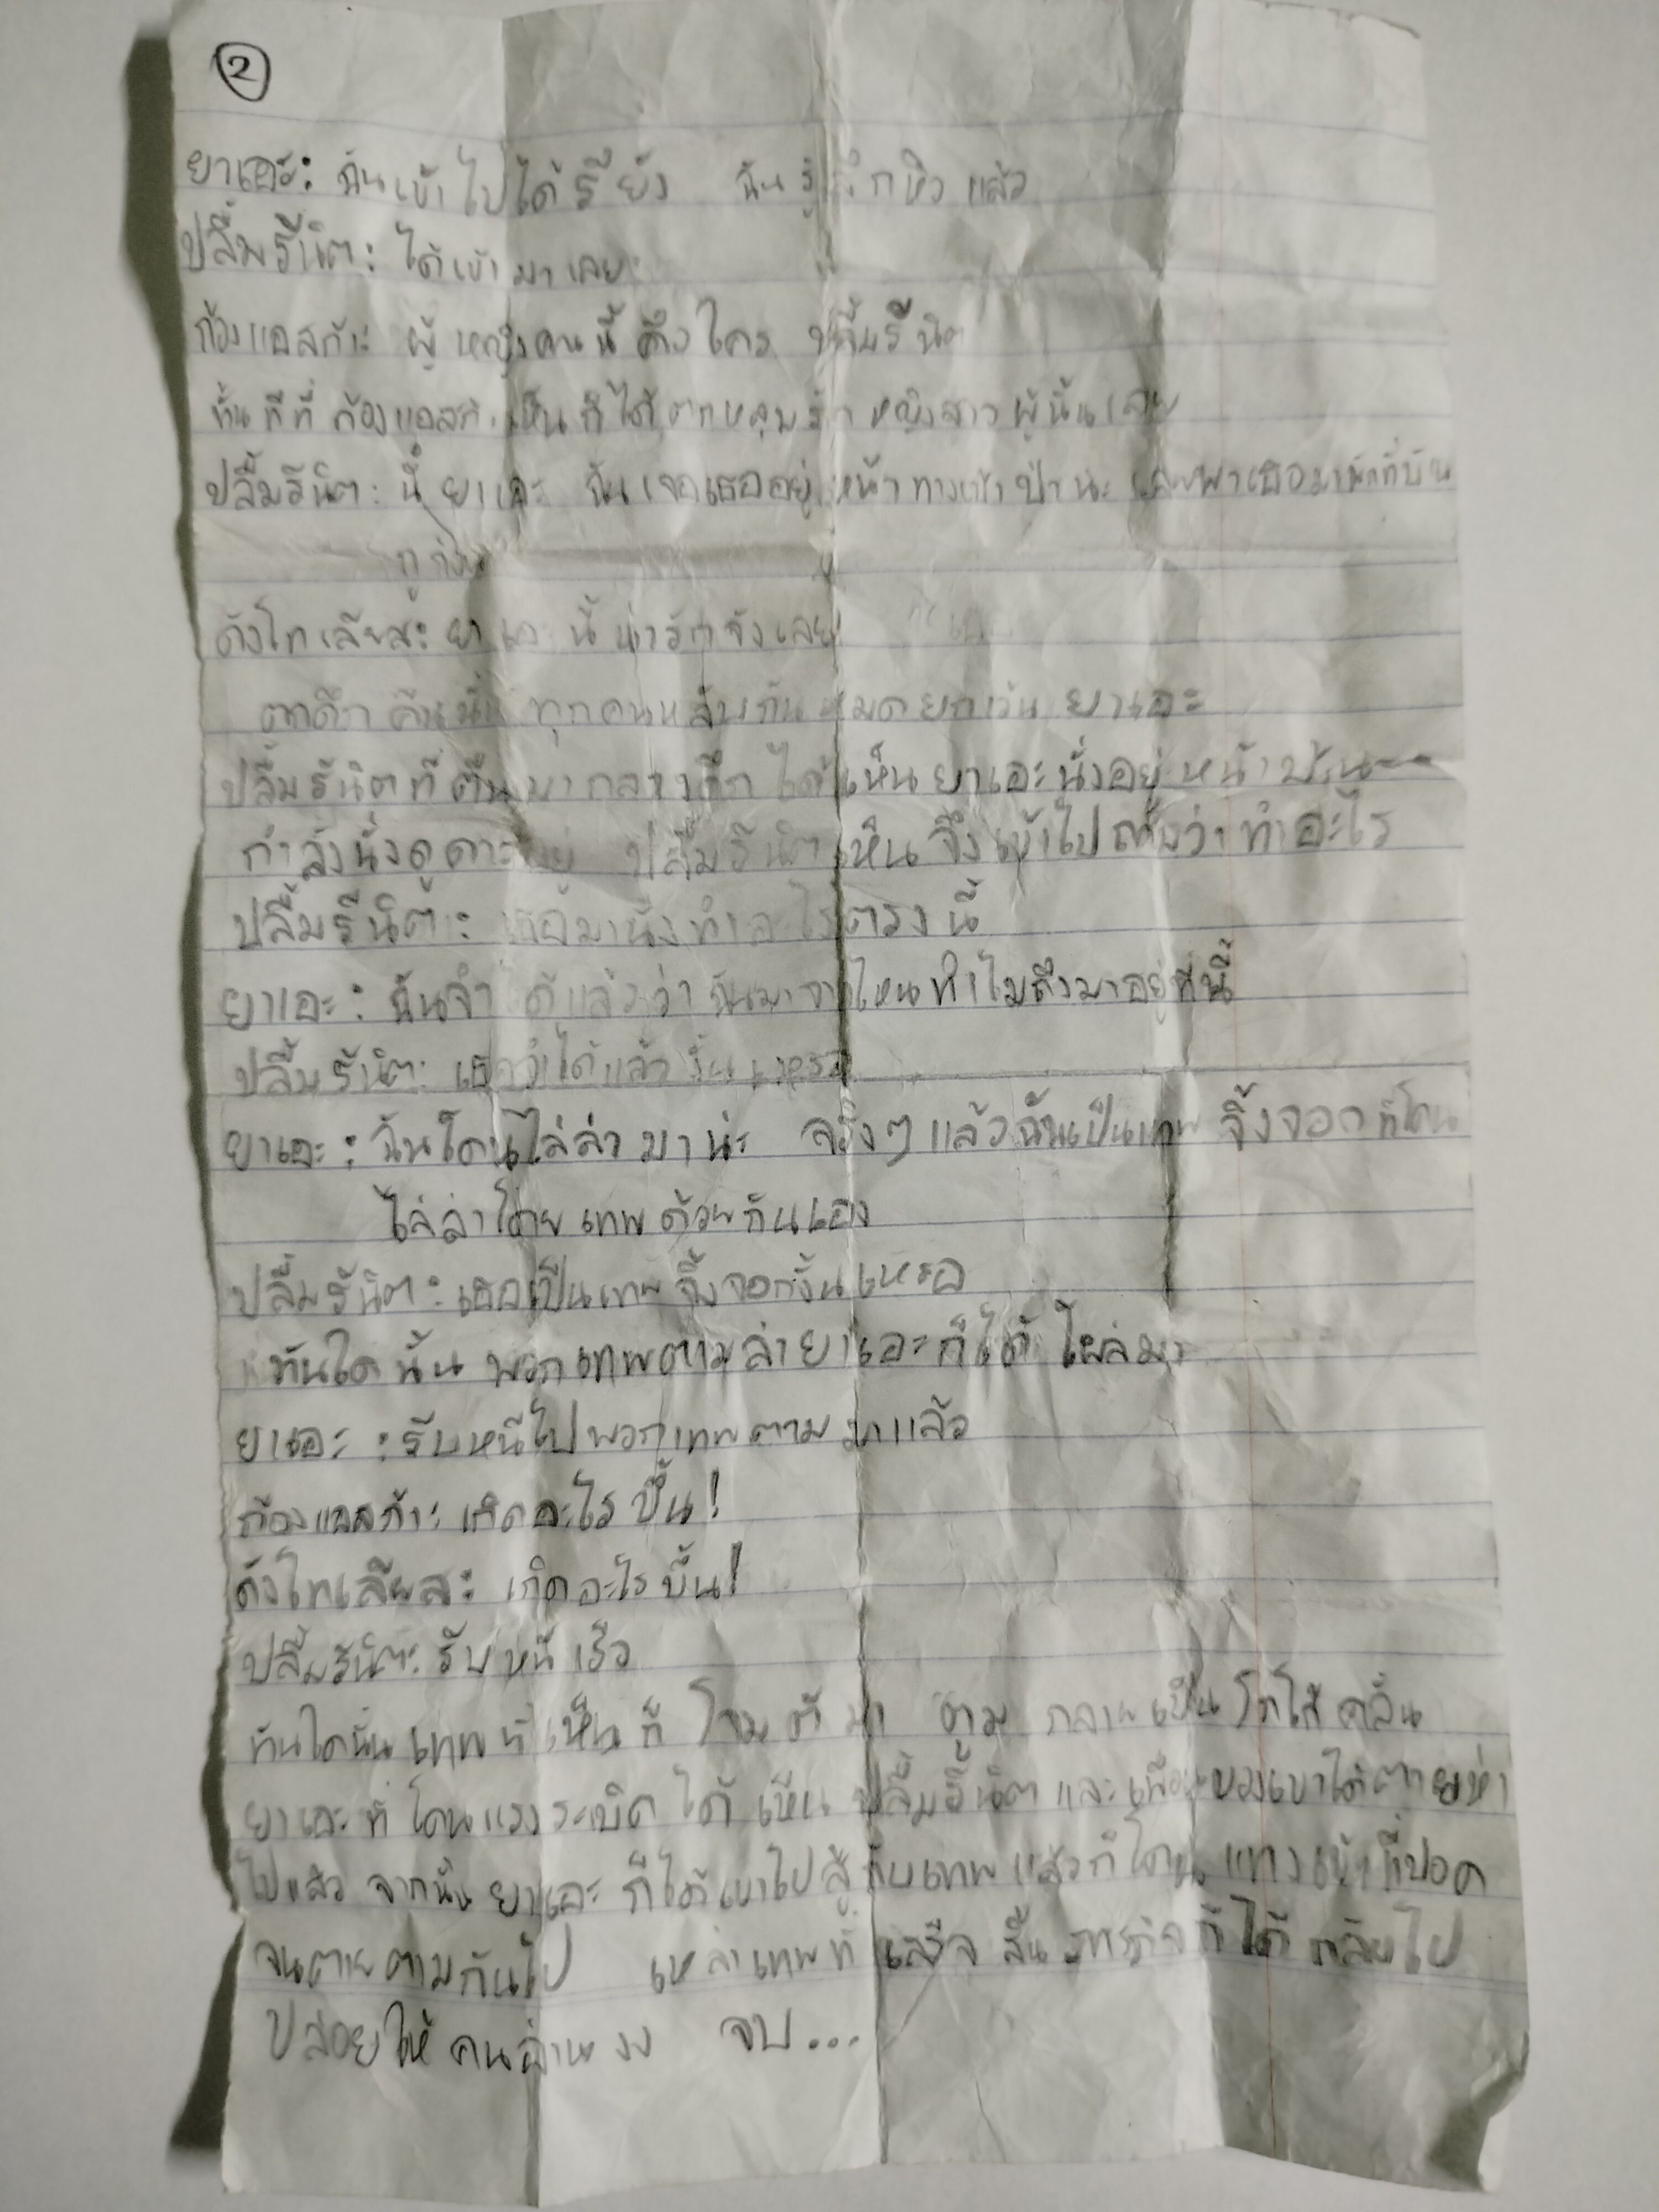 2
ยาเอะ: ฉันเข้าไปได้รึยัง ฉันรู้สึกหิวแล้ว
ปลื้มรีนิต: ได้เข้ามาเลย
ก้องแอสก้า: ผู้หญิงคนนี้คือใคร ปลื้มรีนิต
ทันทีที่ก้องแอสก้าเห็นก็ได้ตกหลุมรักหญิงสาวผู้นั้นเลย
ปลื้มรีนิต: นี้ยาเอะ ฉันเจอเธออยู่หน้าทางเข้าป่านะ เลยพาเธอมาพักที่บ้าน
กูก่อน
ดังโกเลียส: ยาเอะนี้น่ารักจังเลย
ตกดึกคืนนั้นทุกคนหลับกันหมดยกเว้นยาเอะ
ปลื้มรีนิตที่ตื่นมากลางดึกได้เห็นยาเอะนั่งอยู่หน้าบ้าน
กำลังนั่งดูดาวอยู่ ปลื้มรีนิตเห็นจึงเข้าไปถามว่าทำอะไร
ปลื้มรีนิต: เธอมานั่งทำอะไรตรงนี้
ยาเอะ: ฉันจำได้แล้วว่าฉันมาจากไหนทำไมถึงมาอยู่ที่นี้
ปลื้มรีนิต: เธอจำได้แล้วงั้นเหรอ
ยาเอะ: ฉันโดนไล่ล่ามาน่ะ จริงๆแล้วฉันเป็นเทพจิ้งจอกที่โดน
ไล่ล่าโดยเทพด้วยกันเอง
ปลื้มรีนิต: เธอเป็นเทพจิ้งจอกงั้นเหรอ
ทันใดนั้นพวกเทพตามล่ายาเอะก็ได้โผล่มา
ยาเอะ: รีบหนีไปพวกเทพตามมาแล้ว
ก้องแอสก้า: เกิดอะไรขึ้น!
ดังโกเลียส: เกิดอะไรขึ้น!
ปลื้มรีนิต: รีบหนีเร็ว
ทันใดนั้นเทพที่เห็นก็โจมตีมา ตาม กลายเป็น
ยาเอะที่โดนแรงระเบิดได้เห็นปลื้มรีนิตและเพื่อนของเขาได้ตายห่า
ไปแล้ว จากนั้นยาเอะก็ได้เข้าไปสู้กับเทพแล้วก็โดนแทงเข้าที่ปอด
จนตายตามกันไป เหล่าเทพที่เสร็จสิ้นภารกิจก็ได้กลับไป
ปล่อยให้คนอ่านงง จบ...